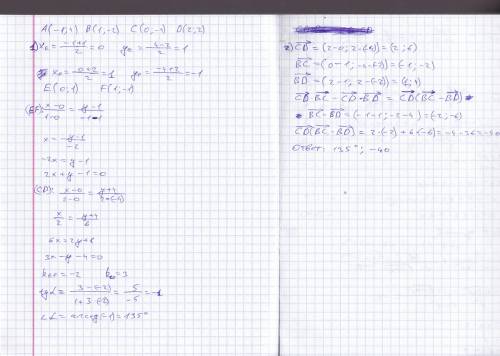 A(-1;4) B(1;-2) C(0;-4) D(2;2)
1) x_E = (-1+1)/2 = 0 y_E = (4-2)/2 = 1
x_F = (0+2)/2 = 1 y_F = (-4+2)/2 = -1
E(0;1) F(1;-1)
(EF): (x-0)/(1-0) = (y-1)/(-1-1)
x = (y-1)/-2
-2x = y-1
2x+y-1=0
(CD): (x-0)/(2-0) = (y+4)/(2+(-4))
x/2 = (y+4)/6
6x=2y+8
3x-y-4=0
k_EF = -2 k_CD = 3
tgα = (3-(-2))/(1+3·(-2)) = 5/-5 = -1
∠α = arctg(-1) = 135°
2) CD = (2-0; 2-(-4)) = (2;6)
BC = (0-1; -4-(-2)) = (-1;-2)
BD = (2-1; 2-(-2)) = (1;4)
CD·BC - CD·BD = CD(BC-BD)
BC-BD = (-1-1; -2-4) = (-2;-6)
CD(BC-BD) = 2·(-2)+6·(-6) = -4-36 = -40
Ответ: 135°; -40